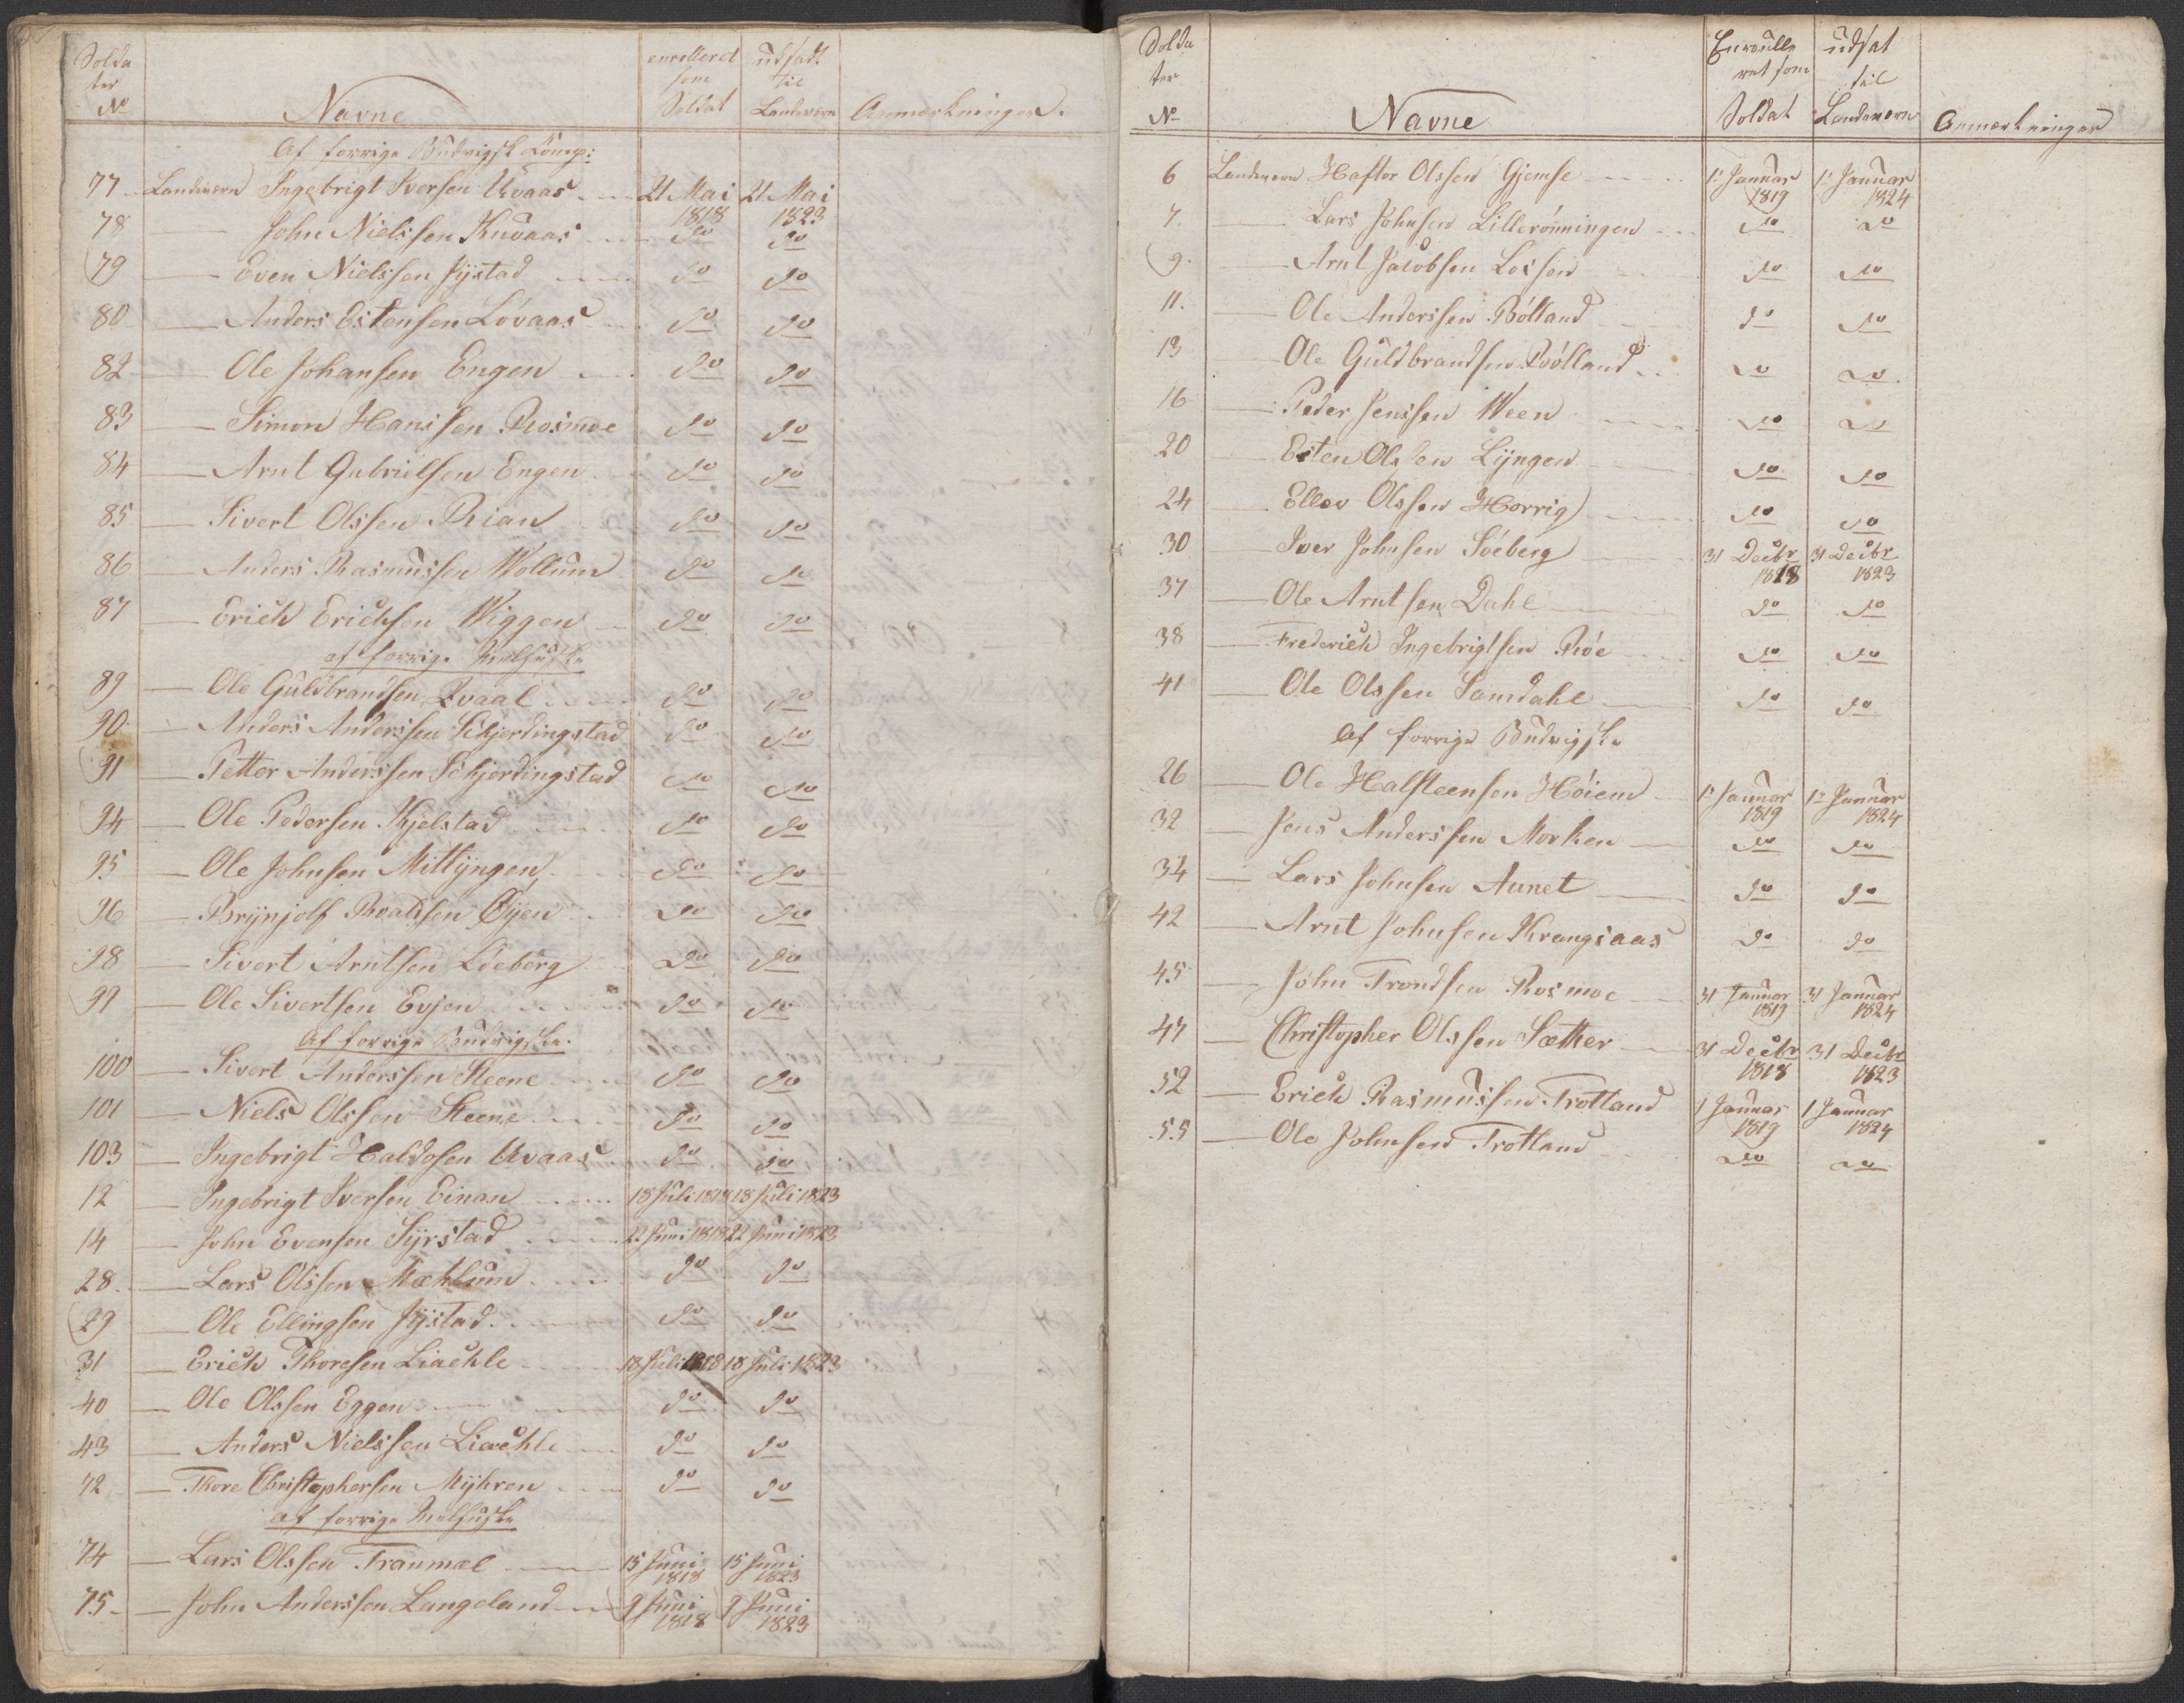 Solda
ter
No
Navne
enrolleret
som
Soldat
udsadt
til
Landeværn
Anmærkninger.
Af forrige Budvigsk Comp:
77 Landeværn Ingebrigt Iversen Uvaas 21 Mai 1818 21 Mai 1823
78 — John Nielssen Kuvaas do do
79 — Even Nielssen Jÿstad do do
80 — Anders Estensen Lóvaas do do
82 — Ole Johansen Engen do do
83 — Simon Hanssen Rosmoe do do
84 — Arnt Gabrielsen Engen do do
85 — Sivert Olssen Rian do do
86 — Anders Rasmussen Wollum do do
87 — Erich Erichsen Wiggen do do
af forrige Melhuske
89 — Ole Guldbrandsen Kvaal do do
90 — Anders Anderssen Schjerdingstad do do
91 — Petter Anderssen Schjerdingstad do do
94 — Ole Pedersen Kjelstad do do
95 — Ole Johnsen Mitlÿngen do do
96 — Brÿnjolf Roaldsen Öÿen do do
98 — Sivert Arntsen Lóeberg do do
99 — Ole Sivertsen Evjen do do
Af forrige Budvigske.
100 — Sivert Anderssen Steene do do
101 — Niels Olssen Steene do do
103 — Ingebrigt Haldosen Uvaas do do
12 — Ingebrigt Iversen Einan 18 Juli 1818 18 Juli 1823
14 — John Evensen Sÿrstad 22 Juni 1818 22 Juni 1823
28 — Lars Olssen Mæhlum do do
29 — Ole Ellingsen Jÿstad do do
31 — Erich Thoresen Liæchle 18 Juli 1818 18 Juli 1823
40 — Ole Olssen Eggen do do
43 — Anders Nielssen Liæchle do do
72 — Thore Christophersen Mÿhren do do
af forrige Melhuske
74 — Lars Olssen Tranmæl 15 Juni 1818 15 Juni 1823
75 — John Anderssen Langeland 9 Juni 1818 9 Juni 1823
Solda
ter
No
Navne
Enroulle
ret som
Soldat
udsat
til
Landeværn
Anmærkninger
6 Landeværn Haftor Olssen Gjemse 1 Januar 1819 1 Januar 1824
7. — Lars Johnsen Lillerónningen do do
9. — Arnt Jacobsen Losen do do
11. — Ole Anderssen Bólland do do
13 — Ole Guldbrandsen Qvólland do do
16 — Peder Jenssen Ween do do
20 — Esten Olssen Lÿngen do do
24 — Ellev Olssen Horrig do do
30 — Iver Johnsen Sóeberg 31 Decbr 1818 31 Decbr 1823
37 — Ole Arntsen Dahl do do
38 — Frederich Ingebrigtsen Róe do do
41 — Ole Olssen Samdahl do do
Af forrige Budvigske
26 — Ole Halsteensen Hóiem 1 Januar 1819 1 Januar 1824
32 — Jens Anderssen Morken do do
34 — Lars Johnsen Aunet do do
42 — Arnt Johnsen Krangsaas do do
45 — John Trondsen Rosmoe 31 Januar 1819 31 Januar 1824
47 — Christopher Olssen Sæther 31 Decbr 1818 31 Decbr 1823
52 — Erich Rasmussen Trotland 1 Januar 1819 1 Januar 1824
55 — Ole Johnsen Trotland do do